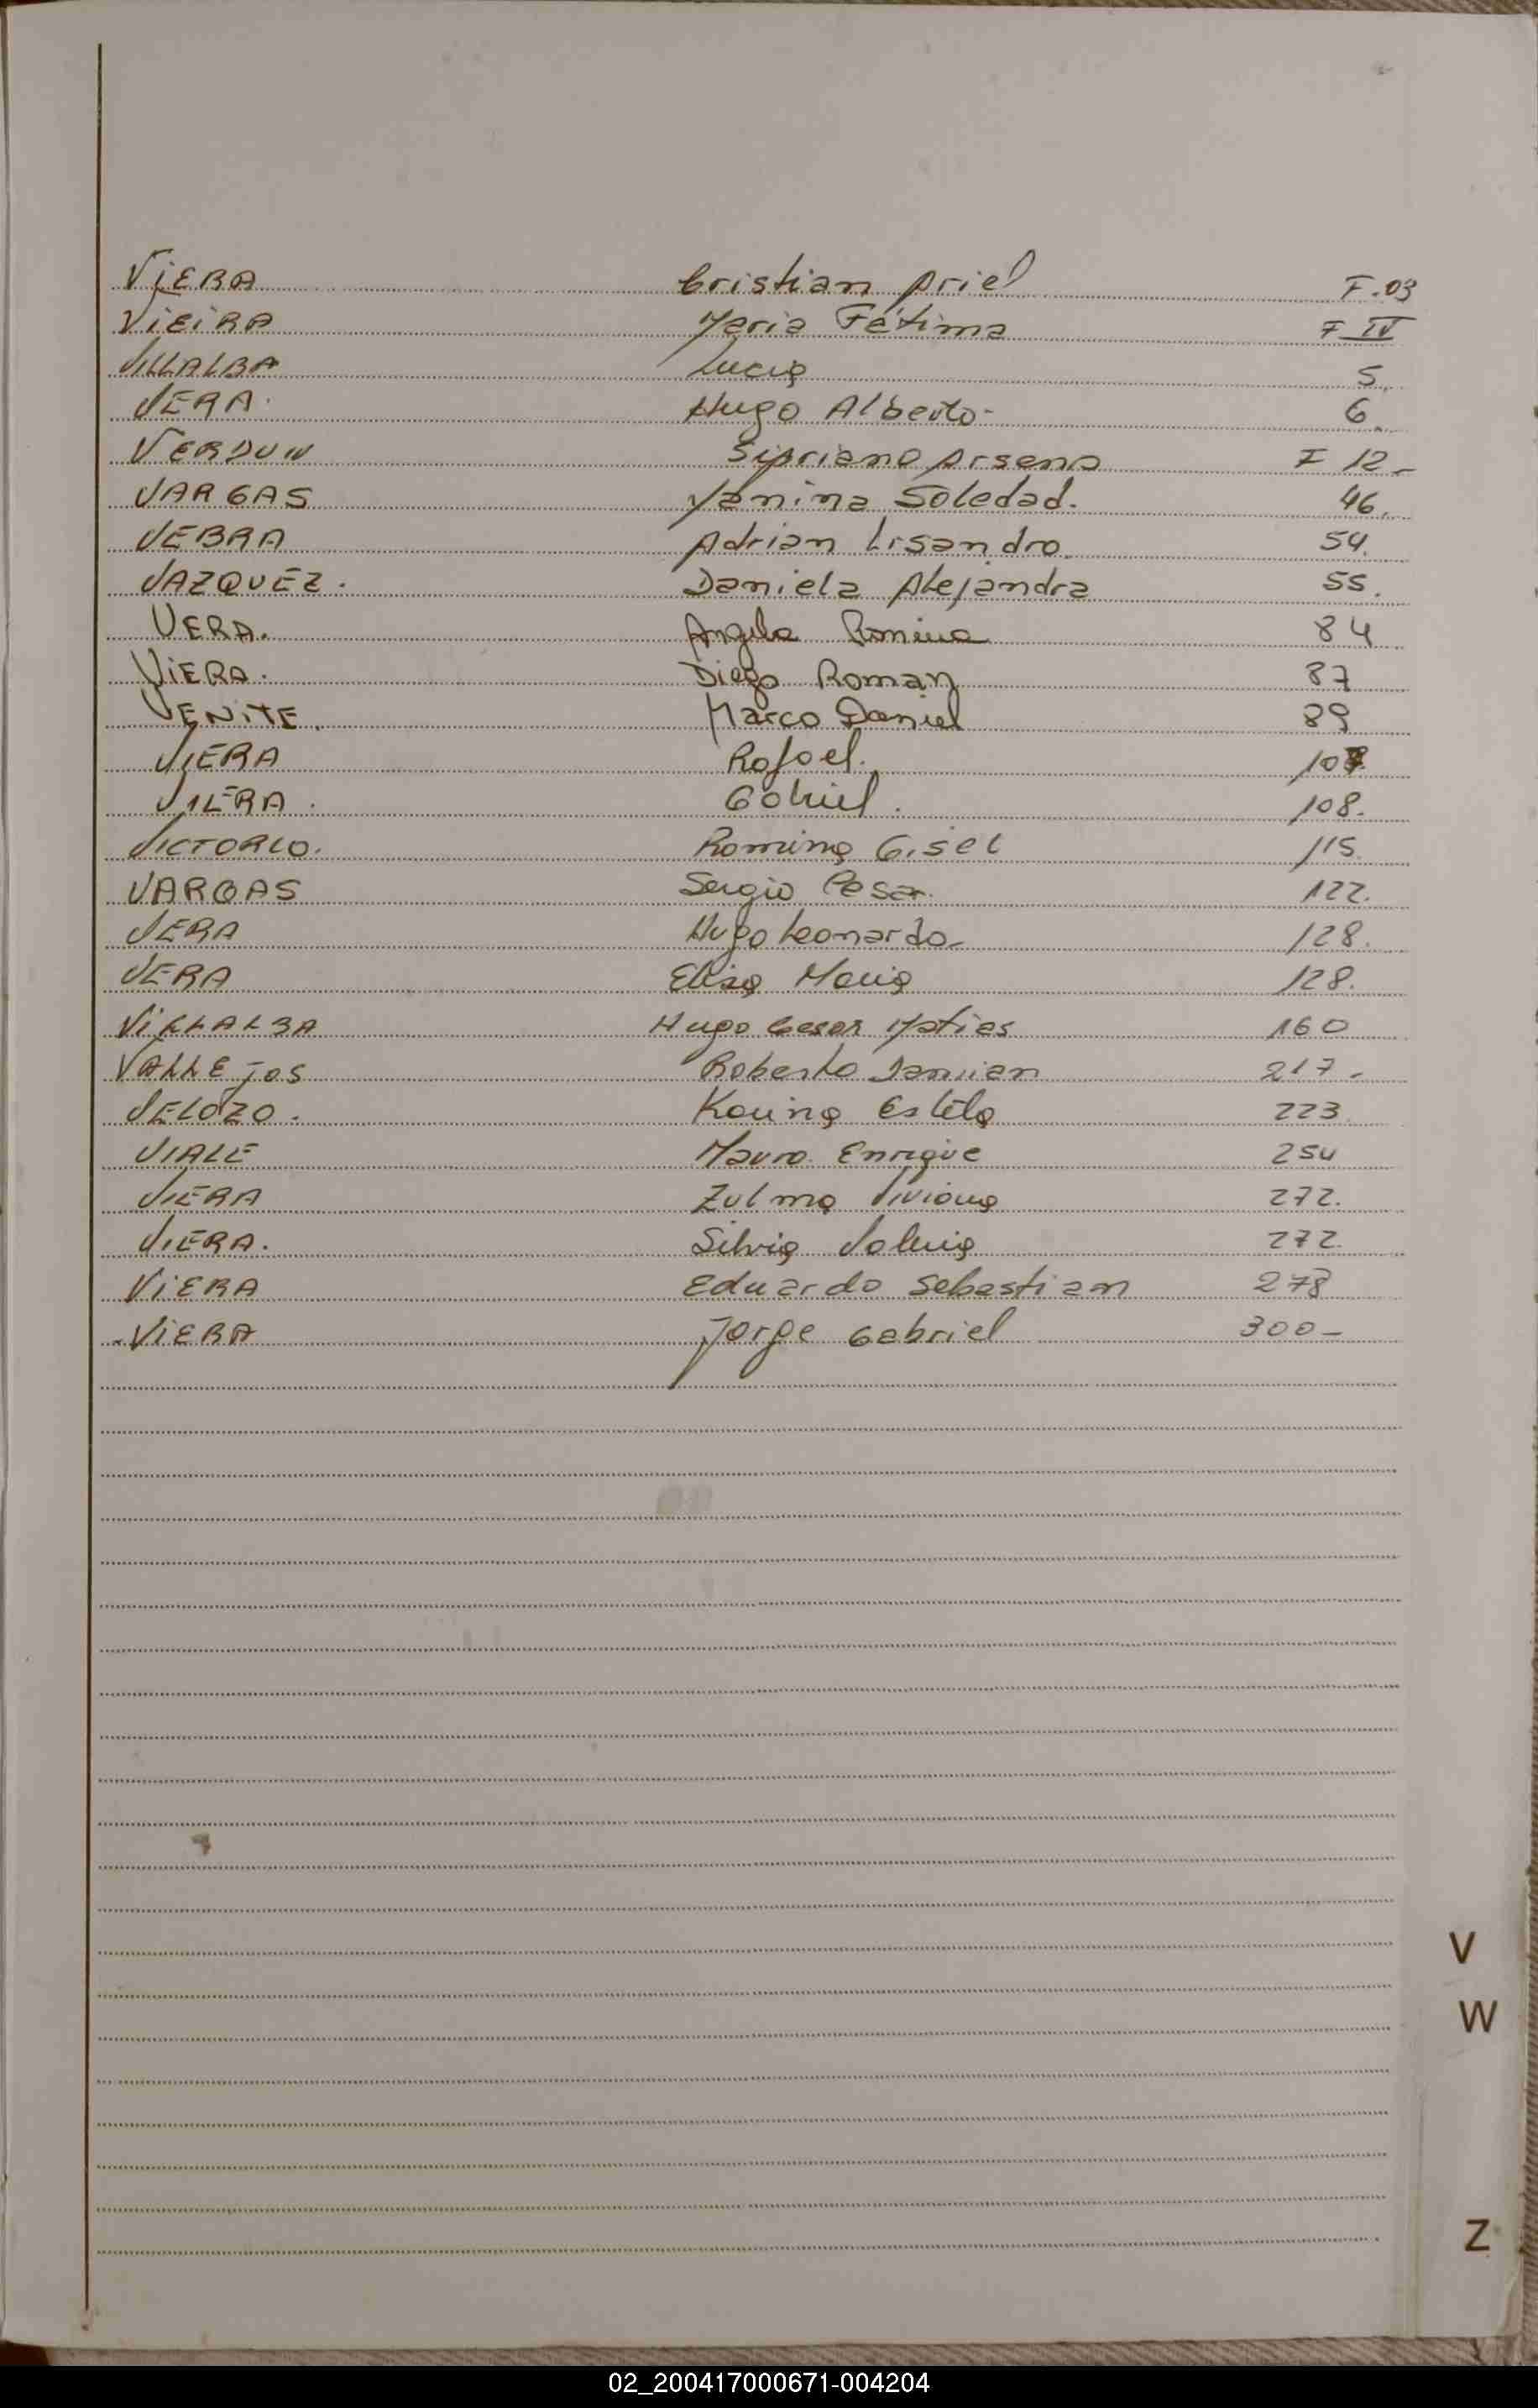 VIERA Cristian Ariel F.03
VIEIRA Maria Fatima F IV
VILLALBA Lucia 5.
VERA. Hugo Alberto- 6.
VERDUN Sipriano Arseno F 12-
VARGAS Yanina Soledad. 46.
VEBRA Adrian Lisandro. 54.
VAZQUEZ. Daniela Alejandra 55.
VERA. Angela Romina 84
VIERA. Diego Roman 87
VENITE. Marco Daniel 89
VIERA Rafael. 107
VIERA. Gabriel. 108.
VICTORIO. Romina Gisel 115.
VARGAS Sergio Cesar. 122.
VERA Hugo Leonardo- 128.
VERA Elisa Maria 128.
VILLALBA Hugo Cesar Matias 160
VALLEJOS Roberto Damian 217-
VELOZO. Karina Estela 223.
VIALE Mauro Enrique 254
VIERA Zulma Viviana 272.
VIERA. Silvia Valeria 272.
VIERA Eduardo Sebastian 278
VIERA Jorge Gabriel 300-
V
W
Z
02_200417000671-004204